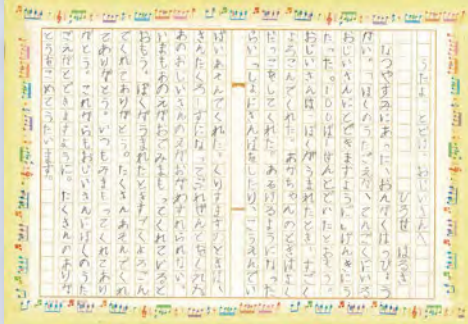 うたよ とどけ おじいさんへ
ひろせ はるき
なつやすみにあった、おんがくはっぴょう
かい。「ぼくのうたごえが、てんごくにいる
おじいさんにとどきますように」とげんきにう
たった。100ぱーせんとどいたとおもう。
おじいさんは、ぼくがうまれたとき、すごく
よろこんでくれた。あかちゃんのときはよく
だっこをしてくれた。あるけるようになった
らいっしょにさんぽをしたり、こうえんでい
っぱいあそんでくれた。くりすますのときは、
さんたくろーすになってぷれぜんとをくれた。
あのおじいさんのえがおがわすれられない。
いまもあのえがおでみまもってくれていると
おもう。ぼくがうまれたときすごくよろこん
でくれてありがとう。たくさんあそんでくれ
てありがとう。いつもみまもってくれてあり
がとう。これからもおじいさんにぼくのうた
ごえがとどきますように。たくさんのありが
とうをこめてうたいます。